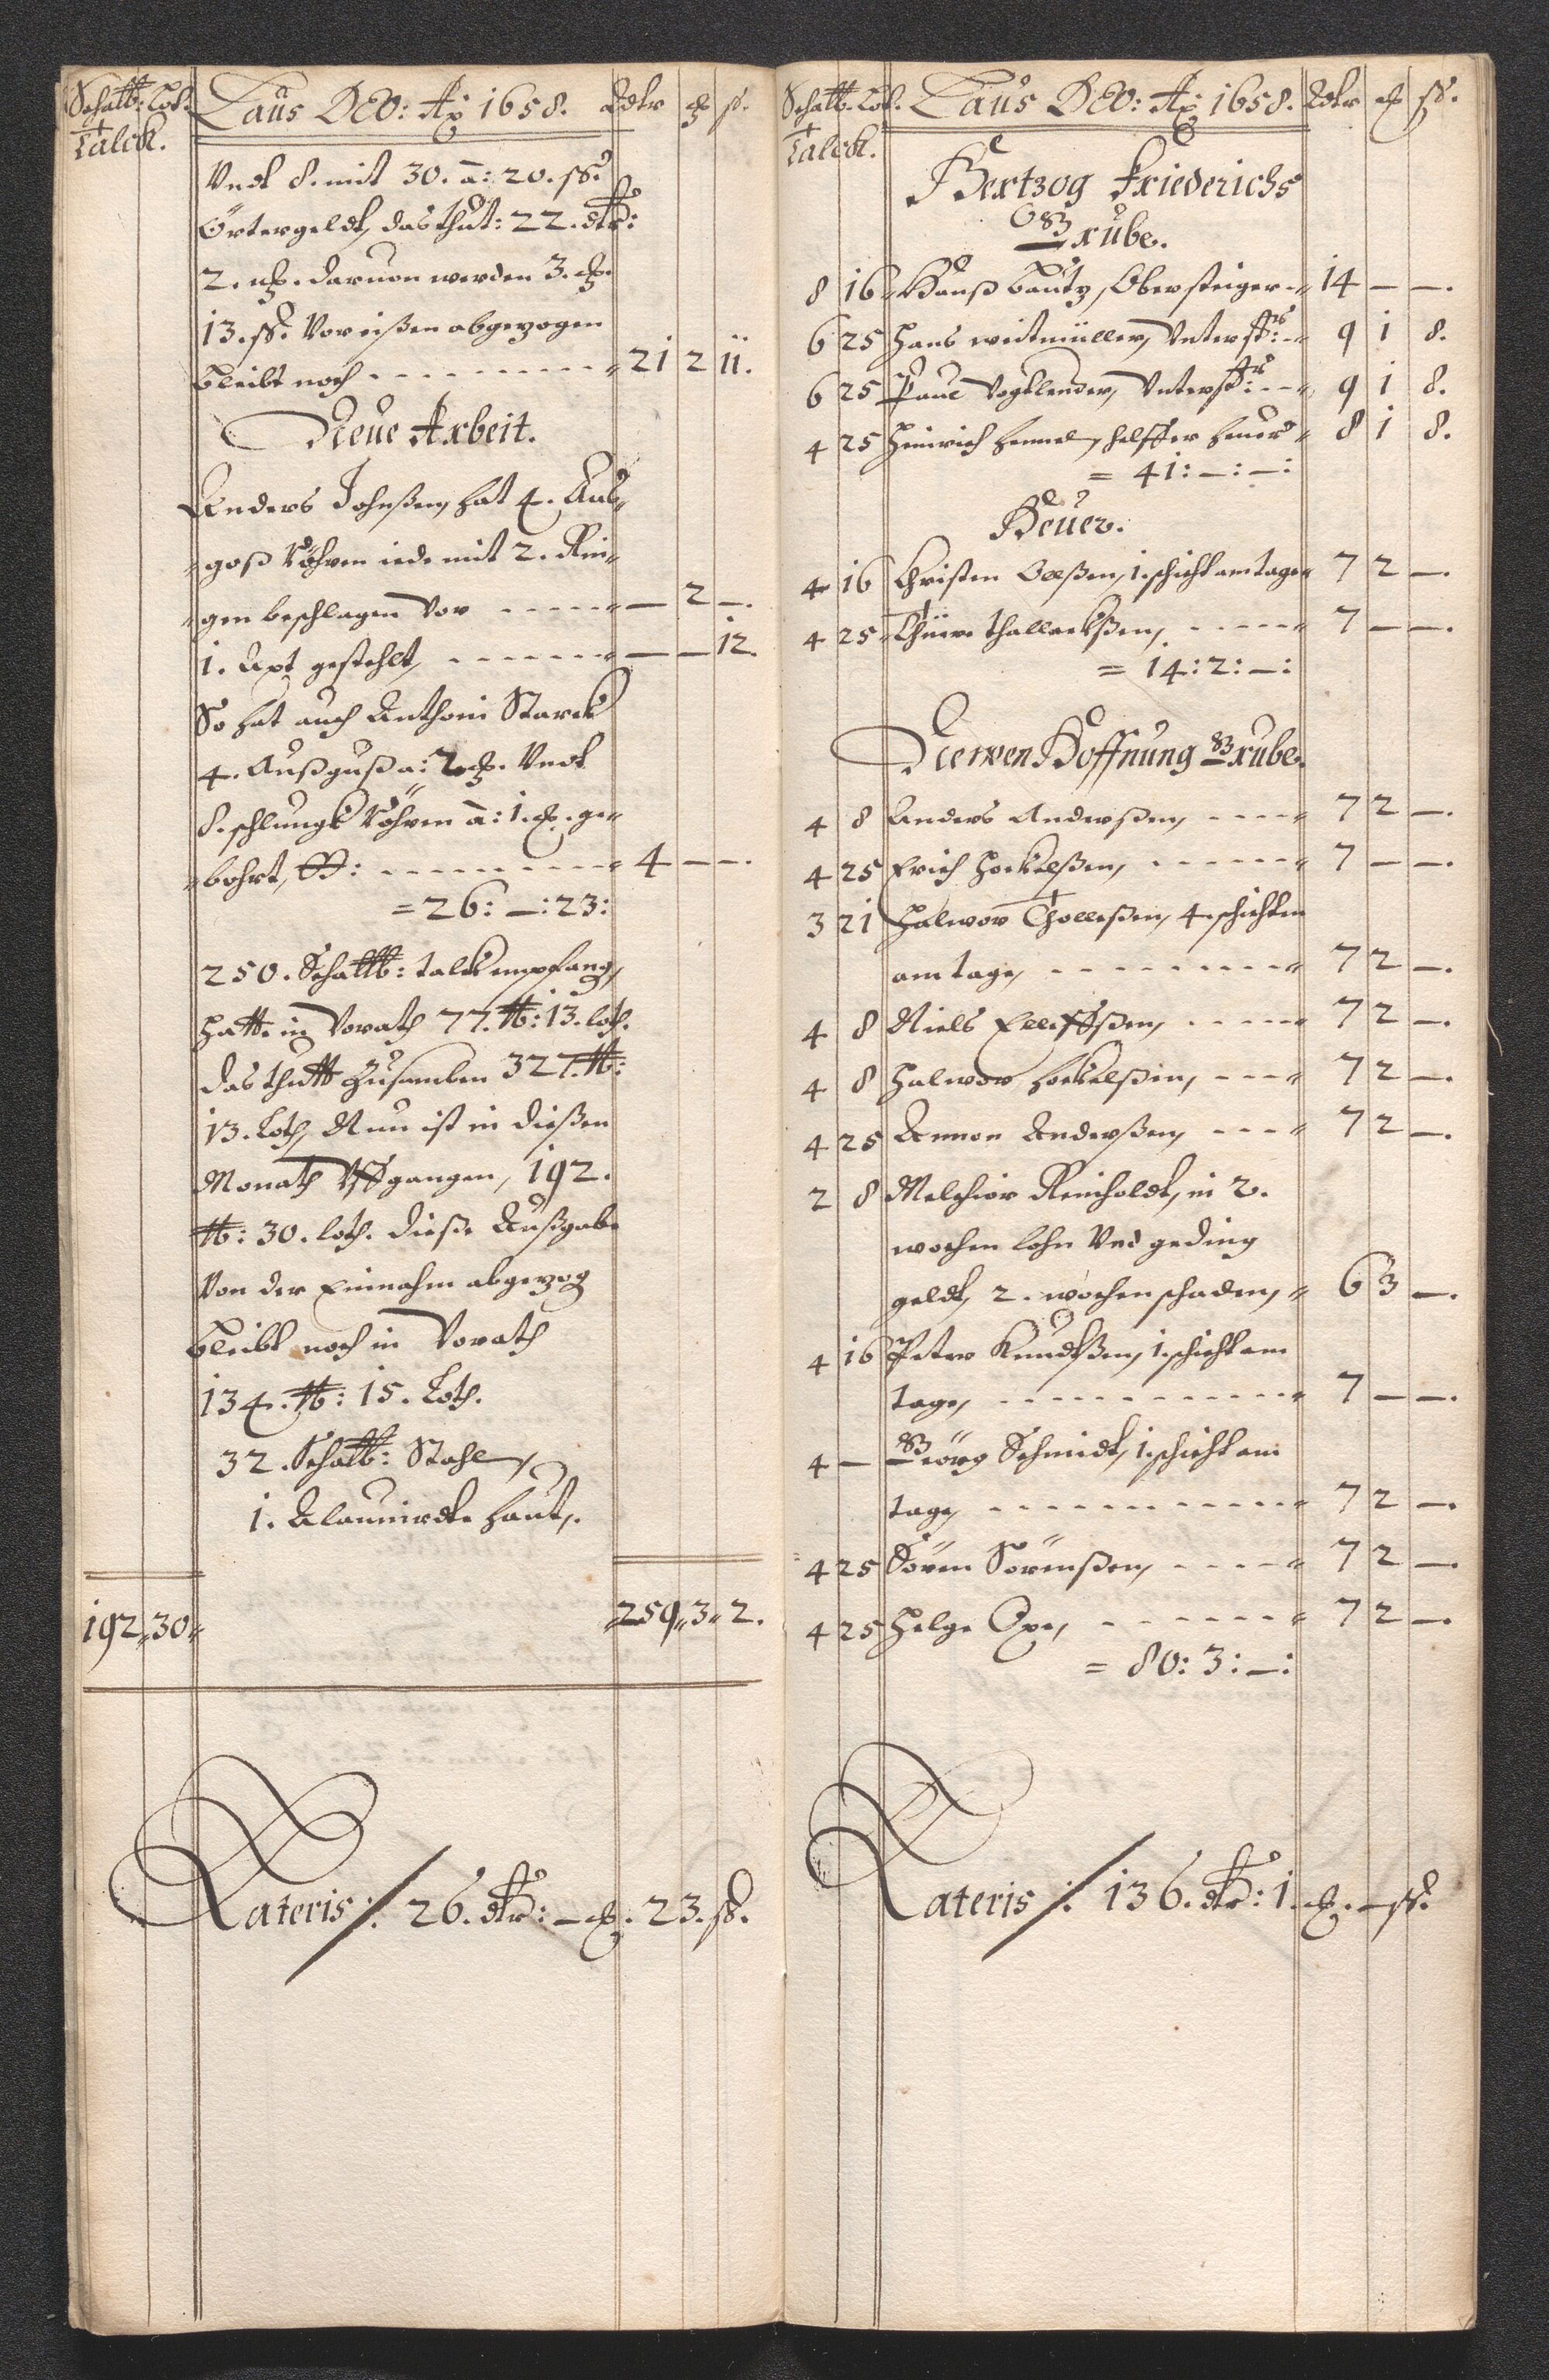 Schalt℔: Lot.
Talck.
Laus DEO: Aō 1658. Rdtr ort ß.
Vndt 8. mit 30. a: 20. ß.
Örtergeldt, das thut: 22. dtr:
2. ort. daruon werden 3. ort.
13. ß. Vor eißen abgezogen
bleibt noch - - - - - - - - - 21 2 11.
Neue Arbeit.
Anders Johnßen, hat 4. Auß-
goß Röhren iede mit 2. Rin-
gen beschlagen vor - - - - - — 2 —.
1. Axt gestehlt, - - - - - - - — — 12.
So hat auch Anthoni Starck
4. Außguß a: 2 ort. Vndt
8. schlungk Röhren a: 1. ort. ge-
bohrt, - - - - - - - - - 4 — —.
= 26: —: 23:
250. Schal℔: talck empfang,
hatt. in Vorath 77. ℔: 13. loth.
das thutt Zusamben 327. ℔:
13. Loth, Nun ist in dießen
Monath Vffgangen, 192.
℔: 30. loth. dieße Außgabe
Von der Einnahm abgezog
bleibt noch in Vorath
134. ℔: 15. Loth.
32. Schal℔: Stahl,
1. Alaunirdte haut,.
192 " 30 " 259 " 3 " 2.
Lateris ./: 26. dtr: — ort: 23. ß.
Schal℔. Lot.
Talck.
Laus DEO: Aō 1658. Rdtr ort ß.
Hertzog Friederichs
Grube.
8 16 Hanß Bautz, Obersteiger - 14 — —.
6 25 Hans weitmüller, Unterstr: - 9 1 8.
6 25 Paul Vogtlender, Unterstr: - - 9 1 8.
4 25 Heinrich Hemmel, helffer heuer 8 1 8.
= 41: —: —:
Heuer.
4 16 Christen Olleßen, 1. schicht am tage 7 2 —.
4 25 Thüwe thallackßen, - - - - - 7 — —.
= 14: 2: —:
Niewen Hoffnung Grube.
4 8 Anders Anderßen, - - - - 7 2 —.
4 25 Erich Hockelßen, - - - - - - 7 — —.
3 21 Halwor Tholleßen, 4. schichten
am tage, - - - - - - - - - 7 2 —.
4 8 Niels Elleffßen, - - - - - 7 2 —.
4 8 Halwor Hockelßen, - - - 7 2 —.
4 25 Ammon Anderßen, - - - 7 2 —.
2 8 Melchior Reinholdt, in 2.
wochen lohn Vnd geding
geldt, 2. wochen schaden, 6 3 —.
4 16 Peter Knudtßen, 1. schicht am
tage, - - - - - - - - - - 7 — —.
4 — Geörg Schmidt, 1. schicht am
tage, - - - - - - - - - - 7 2 —.
4 25 Sören Sörenßen, - - - - 7 2 —.
4 25 Helge Oxe, - - - - - - 7 2 —.
= 80: 3: —:
Lateris ./: 136. dtr: 1. ort. — ß.